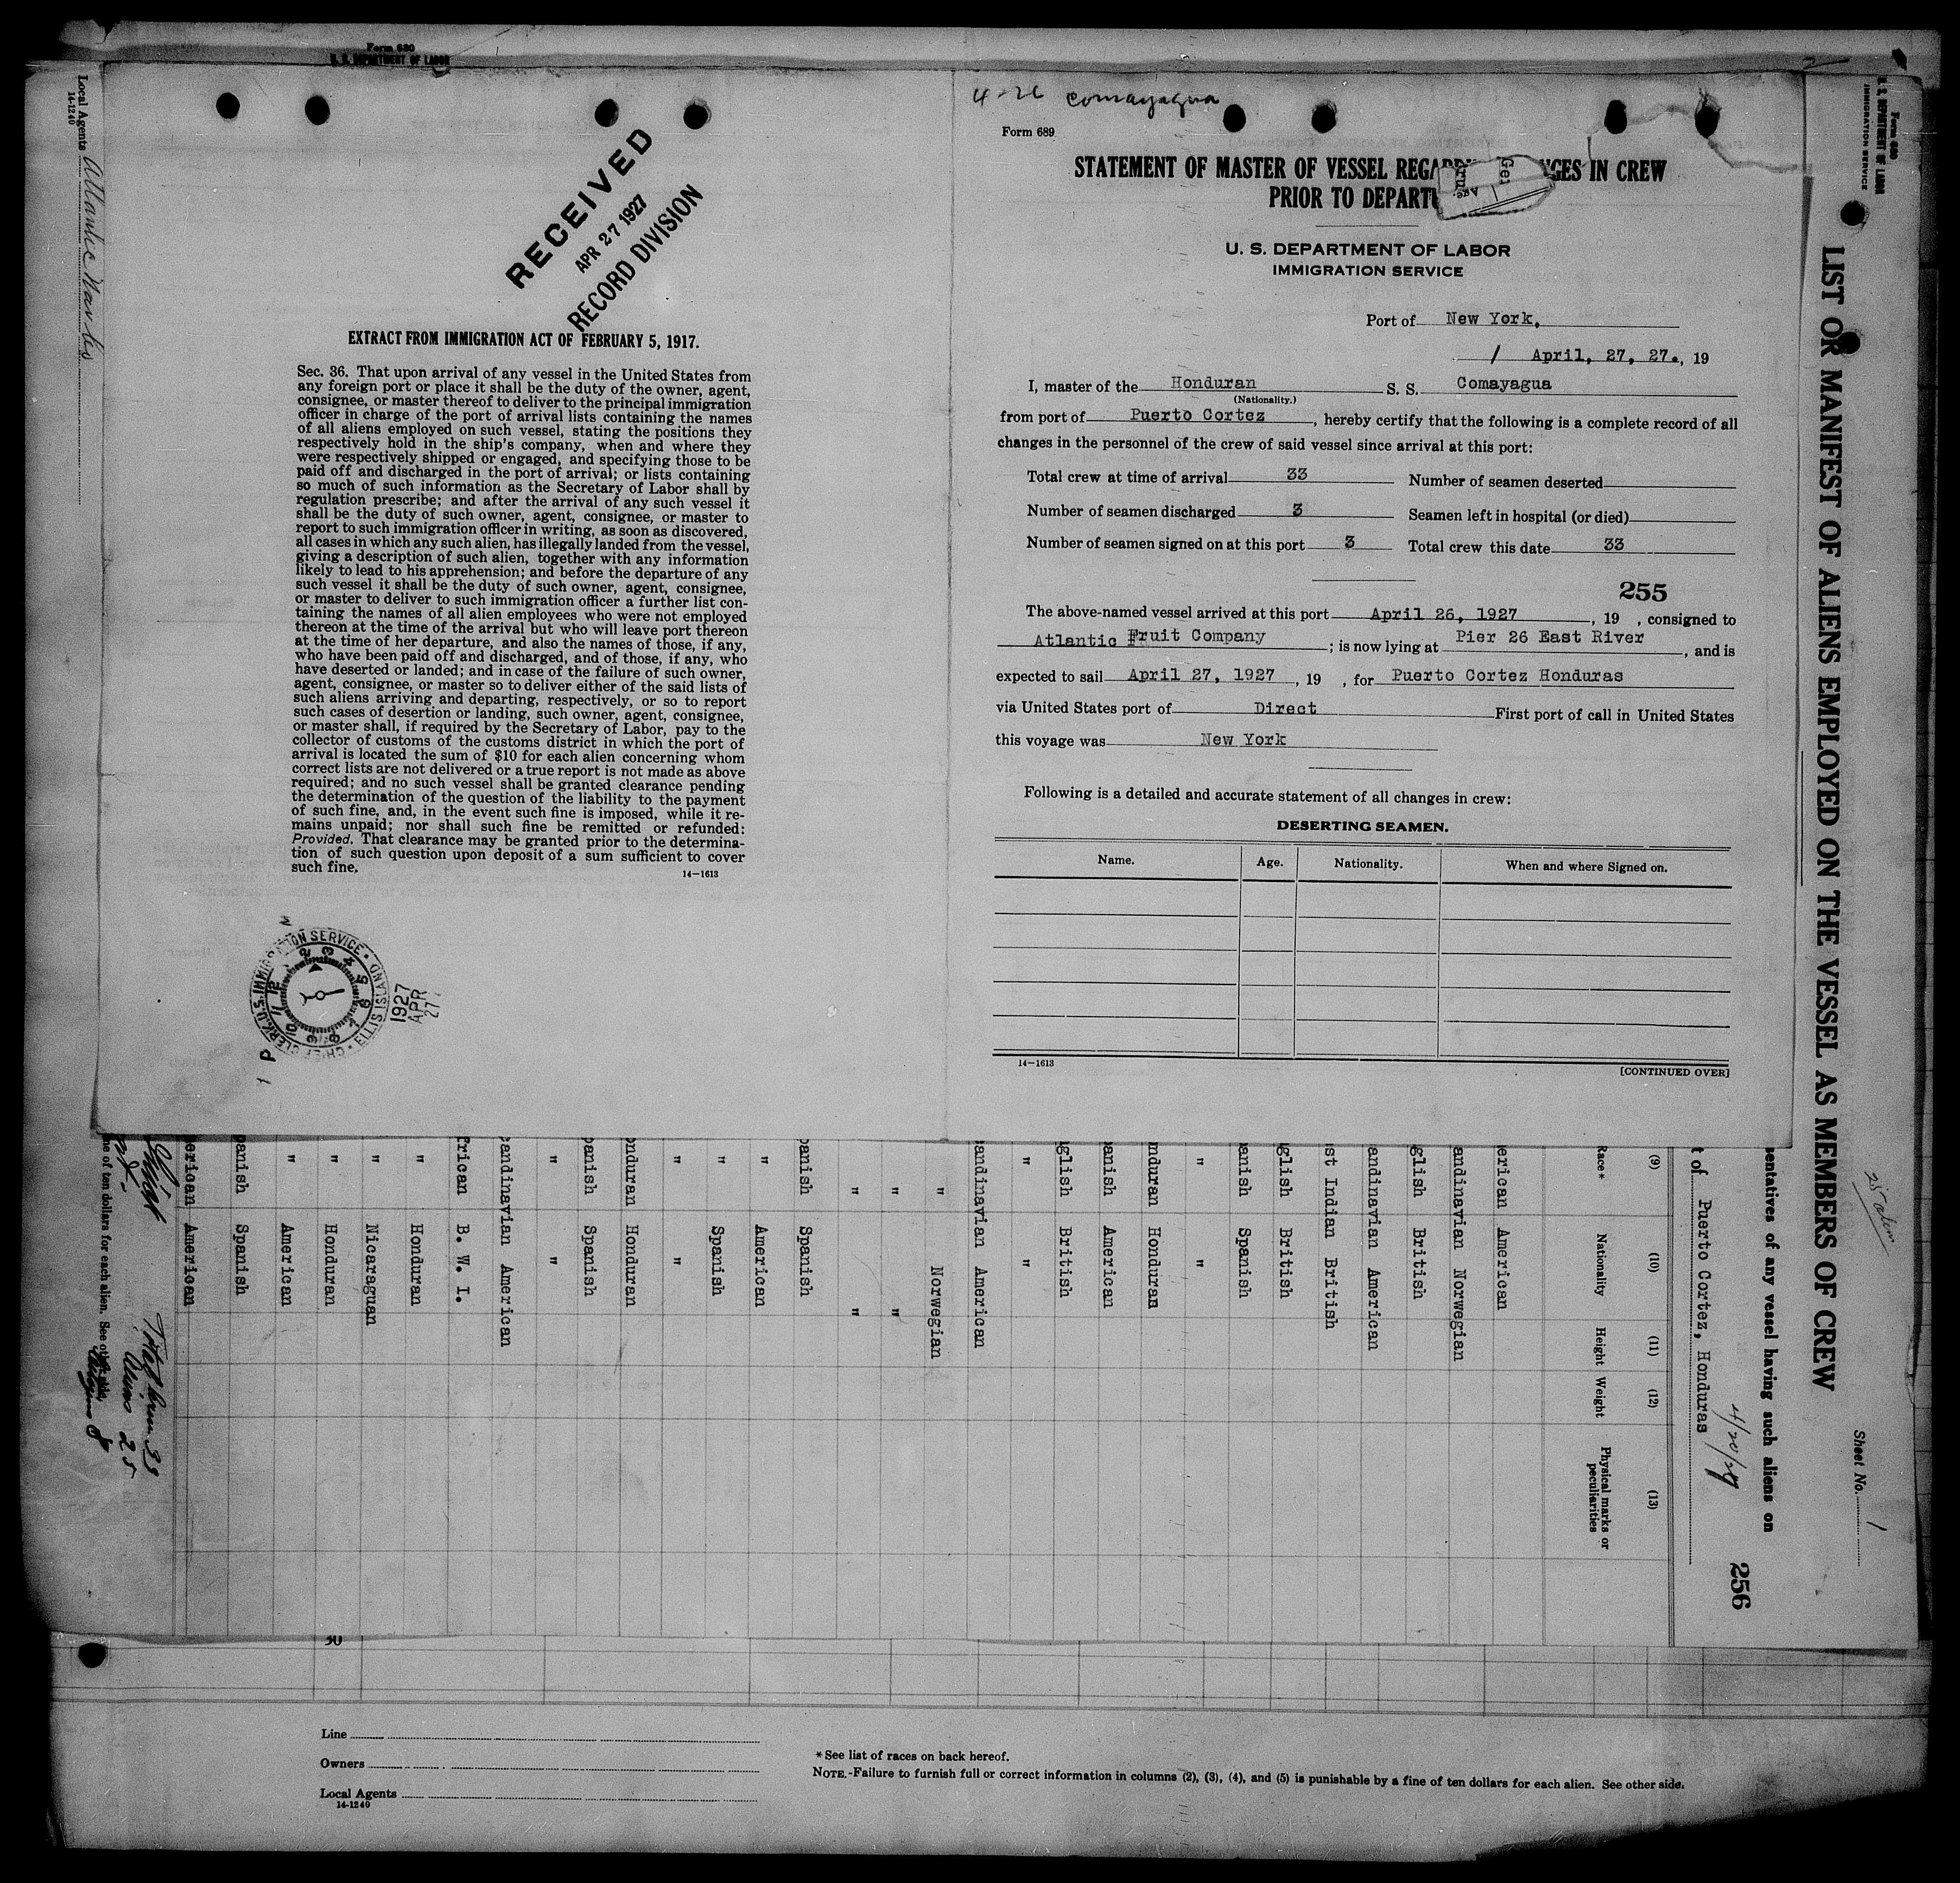 Form 680
U. S. DEPARTMENT OF LABOR
Local Agents
14-1240
RECEIVED
APR 27 1927
RECORD DIVISION
EXTRACT FROM IMMIGRATION ACT OF FEBRUARY 5, 1917.
Sec. 36. That upon arrival of any vessel in the United States from
any foreign port or place it shall be the duty of the owner, agent,
consignee, or master thereof to deliver to the principal immigration
officer in charge of the port of arrival lists containing the names
of all aliens employed on such vessel, stating the positions they
respectively hold in the ship's company, when and where they
were respectively shipped or engaged, and specifying those to be
paid off and discharged in the port of arrival; or lists containing
so much of such information as the Secretary of Labor shall by
regulation prescribe; and after the arrival of any such vessel it
shall be the duty of such owner, agent, consignee, or master to
report to such immigration officer in writing, as soon as discovered,
all cases in which any such alien has illegally landed from the vessel,
giving a description of such alien, together with any information
likely to lead to his apprehension; and before the departure of any
such vessel it shall be the duty of such owner, agent, consignee,
or master to deliver to such immigration officer a further list con-
taining the names of all alien employees who were not employed
thereon at the time of the arrival but who will leave port thereon
at the time of her departure, and also the names of those, if any,
who have been paid off and discharged, and of those, if any, who
have deserted or landed; and in case of the failure of such owner,
agent, consignee, or master so to deliver either of the said lists of
such aliens arriving and departing, respectively, or so to report
such cases of desertion or landing, such owner, agent, consignee,
or master shall, if required by the Secretary of Labor, pay to the
collector of customs of the customs district in which the port of
arrival is located the sum of $10 for each alien concerning whom
correct lists are not delivered or a true report is not made as above
required; and no such vessel shall be granted clearance pending
the determination of the question of the liability to the payment
of such fine, and, in the event such fine is imposed, while it re-
mains unpaid; nor shall such fine be remitted or refunded:
Provided, That clearance may be granted prior to the determina-
tion of such question upon deposit of a sum sufficient to cover
such fine.
14-1613
CHIEF CLERK, U.S. IMMIGRATION SERVICE · ELLIS ISLAND
1927
APR
27
4-26 Comayagua
Form 689
STATEMENT OF MASTER OF VESSEL REGARDING CHANGES IN CREW
PRIOR TO DEPARTURE
U. S. DEPARTMENT OF LABOR
IMMIGRATION SERVICE
Port of New York,
April, 27, 27., 19
I, master of the Honduran S. S. Comayagua
(Nationality.)
from port of Puerto Cortez, hereby certify that the following is a complete record of all
changes in the personnel of the crew of said vessel since arrival at this port:
Total crew at time of arrival 33 Number of seamen deserted
Number of seamen discharged 3 Seamen left in hospital (or died)
Number of seamen signed on at this port 3 Total crew this date 33
255
The above-named vessel arrived at this port April 26, 1927, 19 , consigned to
Atlantic Fruit Company; is now lying at Pier 26 East River, and is
expected to sail April 27, 1927, 19 , for Puerto Cortez Honduras
via United States port of Direct First port of call in United States
this voyage was New York
Following is a detailed and accurate statement of all changes in crew:
DESERTING SEAMEN.
Name. Age. Nationality. When and where Signed on.
14-1613
[CONTINUED OVER]
Form 680
U. S. DEPARTMENT OF LABOR
IMMIGRATION SERVICE
LIST OR MANIFEST OF ALIENS EMPLOYED ON THE VESSEL AS MEMBERS OF CREW
Sheet No. 1
sentatives of any vessel having such aliens on
t of Puerto Cortez, Honduras
256
(9) (10) (11) (12) (13)
Race* Nationality Height Weight Physical marks or peculiarities
erican American
andinavian Norwegian
glish British
andinavian American
st Indian British
glish British
anish Spanish
" "
nduran Honduran
anish American
glish British
" "
andinavian American
" Norwegian
" "
" "
panish Spanish
" American
" Spanish
" "
onduran Honduran
panish Spanish
" "
eandinavian American
frican B. W. I.
" Honduran
" Nicaraguan
" Honduran
" American
panish Spanish
erican American
ne of ten dollars for each alien. See other side.
Total crew 33
Aliens 25
30
Line
Owners
Local Agents
14-1240
*See list of races on back hereof.
NOTE.-Failure to furnish full or correct information in columns (2), (3), (4), and (5) is punishable by a fine of ten dollars for each alien. See other side.